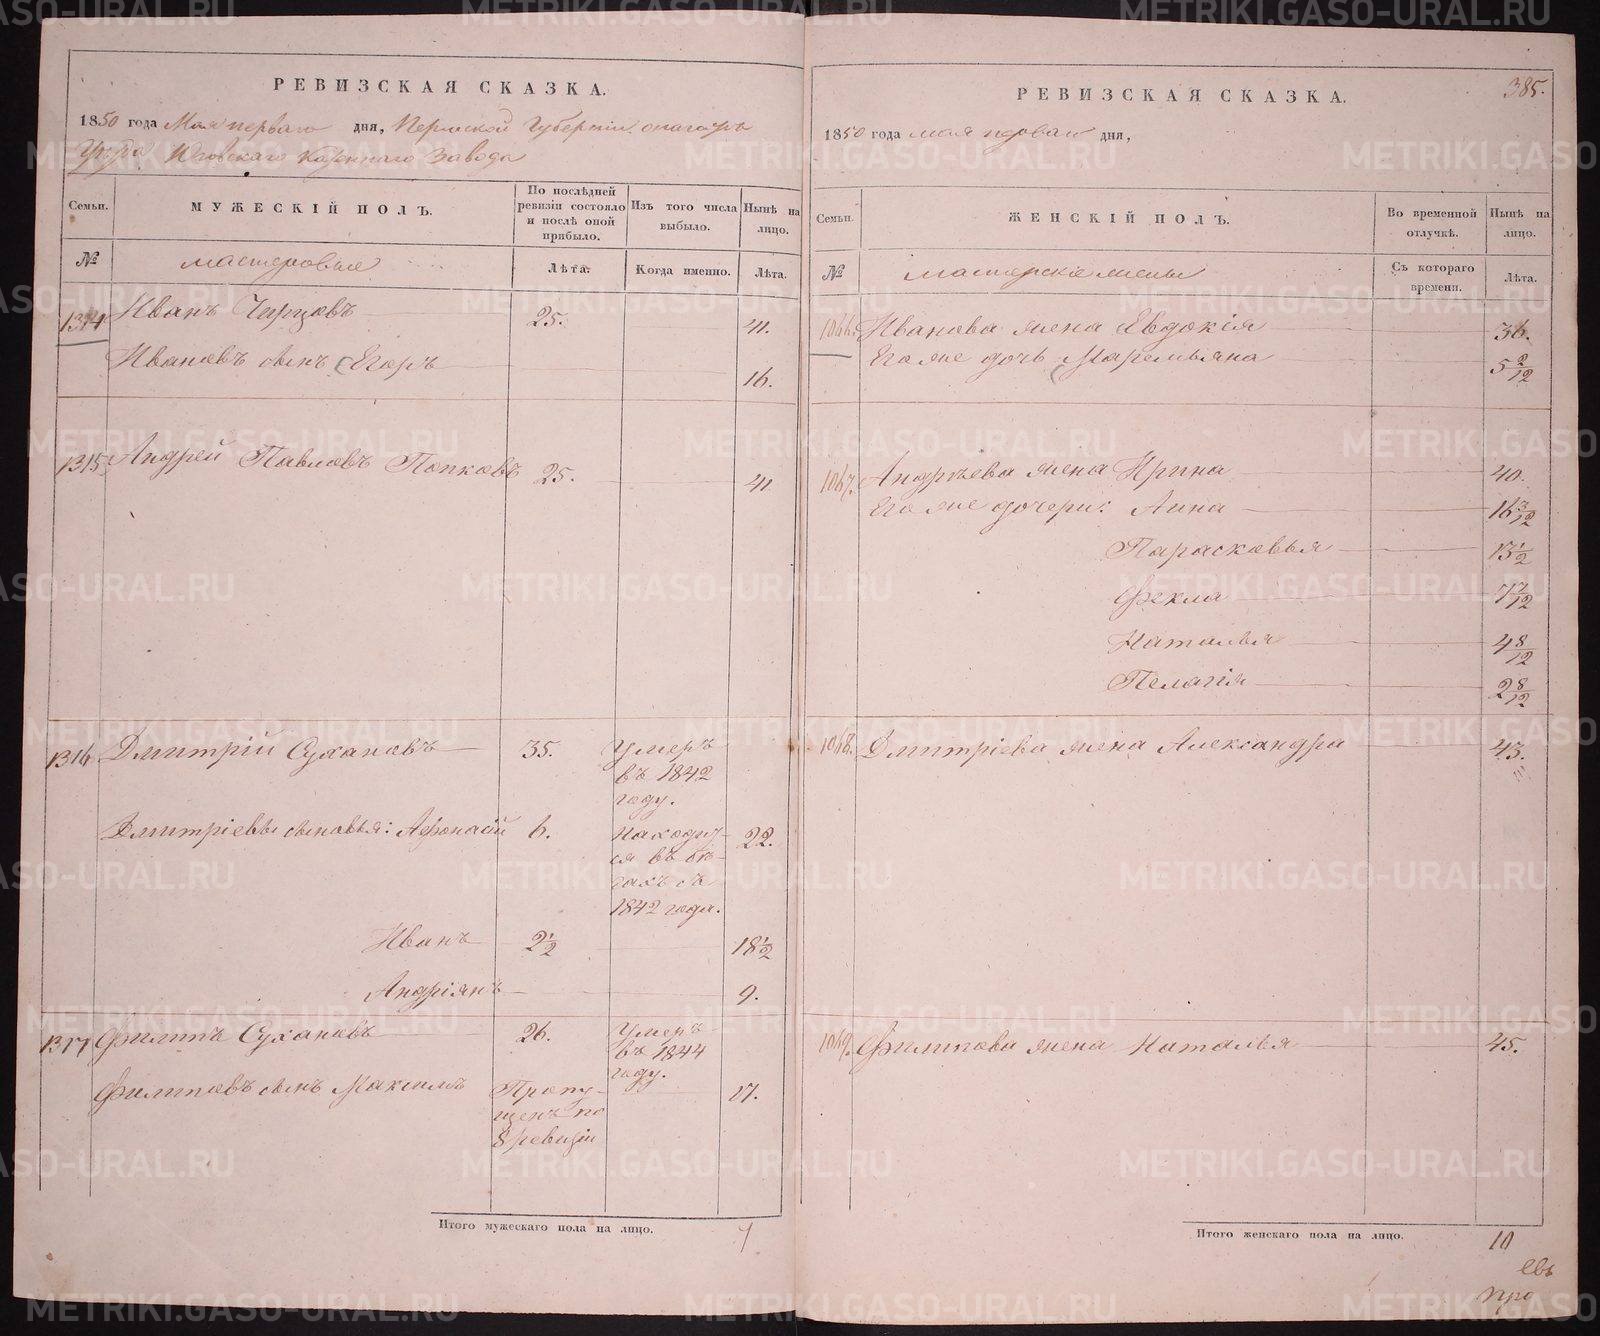 РЕВИЗСКАЯ СКАЗКА.
1850 года Мая перваго дня, Пермской Губернии
Юговскаго Казеннаго Завода
Семьи.
МУЖЕСКІЙ ПОЛЪ.
По послѣдней ревизіи состояло и послѣ оной прибыло.
Изъ того числа выбыло.
Нынѣ на лицо.
№
мастеровые
Лѣта.
Когда именно.
Лѣта.
1314 Иванъ Чирцовъ 25. 41.
Ивановъ сынъ Егоръ 16.
1315 Андрей Павловъ Попковъ 25. 41
1316 Дмитрій Сухановъ 35. Умеръ
въ 1842
году.
Дмитріевы сыновья: Афонасій 6. Находит-
ся въ бѣ-
гахъ съ
1842 года.
22.
Иванъ 2 1/2 18 1/2
Андріянъ 9.
1317 Филипъ Сухановъ 26. Умеръ
въ 1844
году.
Филиповъ сынъ Максимъ Пропу-
щенъ по
8 ревизіи
17.
Итого мужескаго пола на лицо. 7
385.
РЕВИЗСКАЯ СКАЗКА.
1850 года мая перваго дня,
Семьи.
ЖЕНСКІЙ ПОЛЪ.
Во временной отлучкѣ.
Нынѣ на лицо.
№
мастерскіе жены
Съ котораго времени.
Лѣта.
1066. Иванова жена Евдокія 36.
Его же дочь Маремьяна 5 2/12
1067. Андрѣева жена Ирина 40.
Его же дочери: Анна 16 3/12
Парасковья 13 1/2
Фекла 7 7/12
Наталья 4 8/12
Пелагія 2 8/12
1068. Дмитріева жена Александра 43.
1069. Филипова жена Наталья 45.
Итого женскаго пола на лицо. 10
METRIKI.GASO-URAL.RU